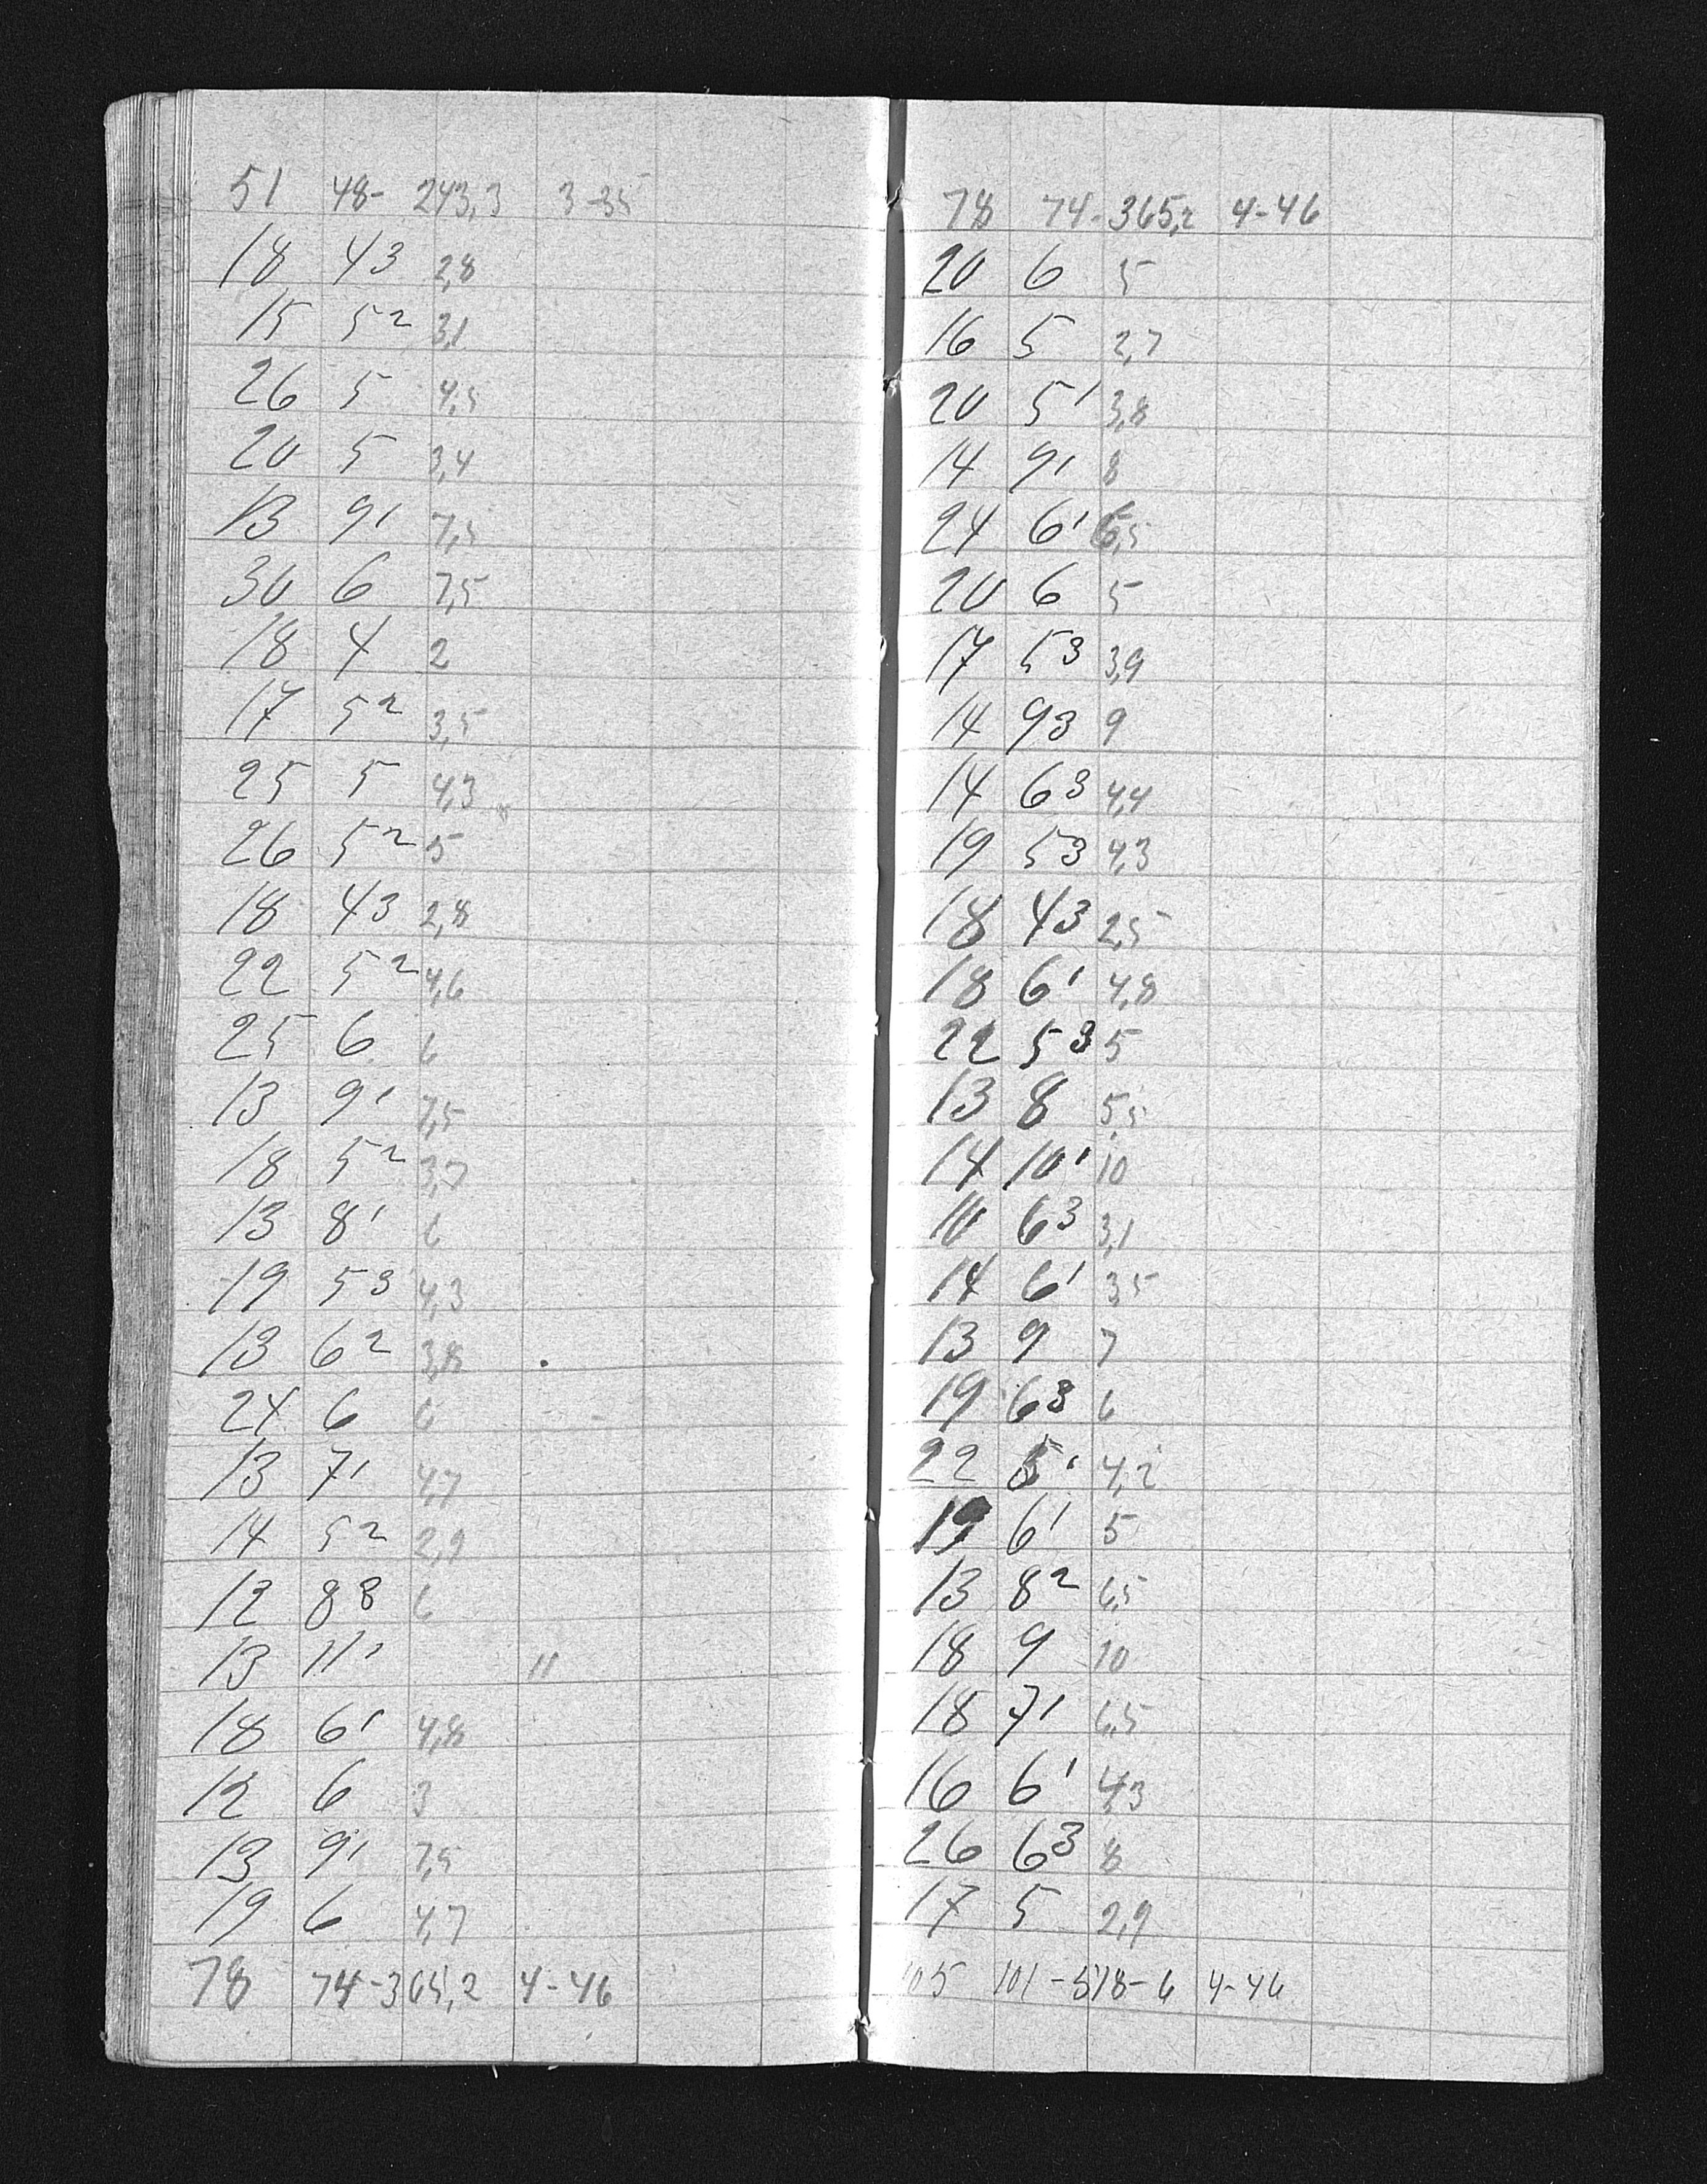 51 48- 243,3 3-35
18 43 2,8
15 5² 3,1
26 5 4,5
20 5 3,4
13 9' 7,5
30 6 7,5
18 4 2
17 5² 3,5
25 5 4,3
26 5² 5
18 43 2,8
22 5² 4,6
25 6 6
13 9' 7,5
18 5² 3,7
13 8' 6
19 5³ 4,3
13 6² 3,8
24 6 6
13 7' 4,7
14 5² 2,9
12 8³ 6
13 11' 11
18 6' 4,8
12 6 3
13 9' 7,5
19 6 4,7
78 74-365,2 4-46
78 74-365,2 4-46
20 6 5
16 5 2,7
20 5' 3,8
14 9' 8
24 6' 6,5
20 6 5
17 5³ 3,9
14 93 9
14 6³ 4,4
19 53 4,3
18 43 2,5
18 6' 4,8
22 5³ 5
13 8 5,5
14 10' 10
10 6³ 3,1
14 6' 3,5
13 9 7
19 6³ 6
22 5' 4,2
19 6' 5
13 8² 6,5
18 9 10
18 7' 6,5
16 6' 4,3
26 6³ 8
17 5 2,9
105 101-518-6 4-46